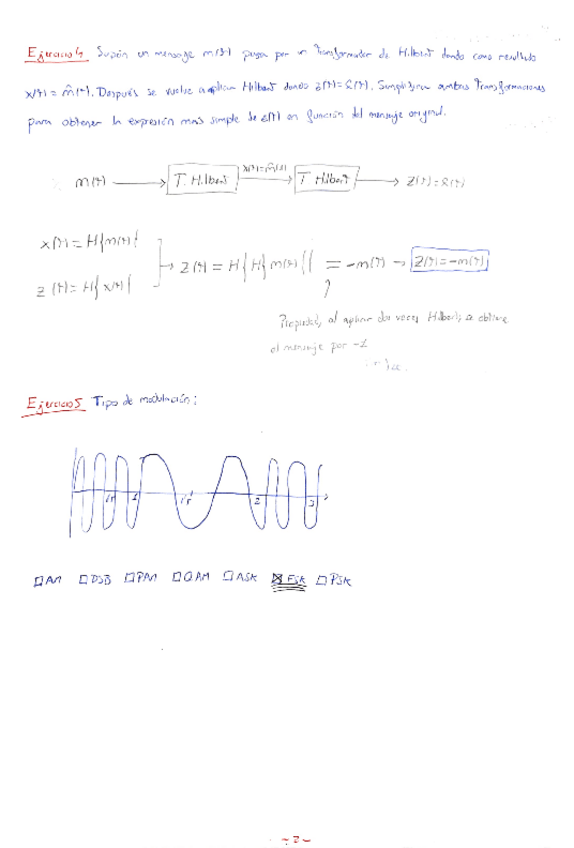 Ejercicio 4 Supón un mensaje m(t) pasa por un transformador de Hilbert dando como resultado
x(t) = m̂(t). Después se vuelve a aplicar Hilbert dando z(t) = x̂(t). Simplificar ambas transformaciones
para obtener la expresión mas simple de z(t) en función del mensaje original.
m(t) → T. Hilbert x(t)=m̂(t) → T Hilbert → z(t)=x̂(t)
x(t) = H{m(t)}
z(t) = H{x(t)}
→ z(t) = H{H{m(t)}} = -m(t) → z(t) = -m(t)
Propiedad, al aplicar dos veces Hilbert, se obtiene
el mensaje por -1
Ejercicio 5 Tipo de modulación:
1 1'5 2 3
□ AM □ DSB □ PAM □ QAM □ ASK ☒ FSK □ PSK
- 2 -